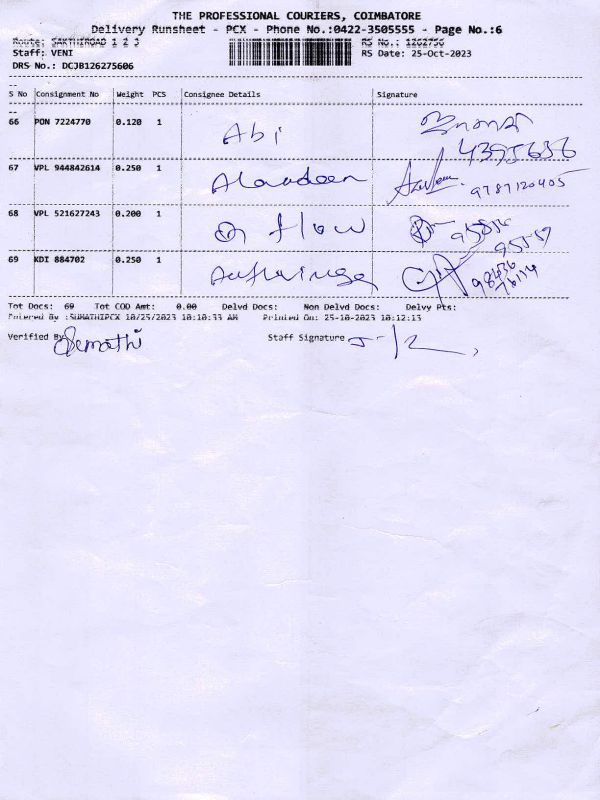 THE PROFESSIONAL COURIERS, COIMBATORE
Delivery Runsheet - PCX - Phone No.:0422-3505555 - Page No.:6
Route: SAKTHIROAD 1 2 3 RS No.: 1262756
Staff: VENI RS Date: 25-Oct-2023
DRS No.: DCJB126275606
S No Consignment No Weight PCS Consignee Details Signature
66 PON 7224770 0.120 1 Abi
67 VPL 944842614 0.250 1 Alaudeen 9787120405
68 VPL 521627243 0.200 1 flow
69 KDI 884702 0.250 1
Tot Docs: 69 Tot COD Amt: 0.00 Delvd Docs: Non Delvd Docs: Delvy Pts:
Entered By :SUMATHIPCX 10/25/2023 10:10:33 AM Printed On: 25-10-2023 10:12:13
Verified By Sumathi Staff Signature